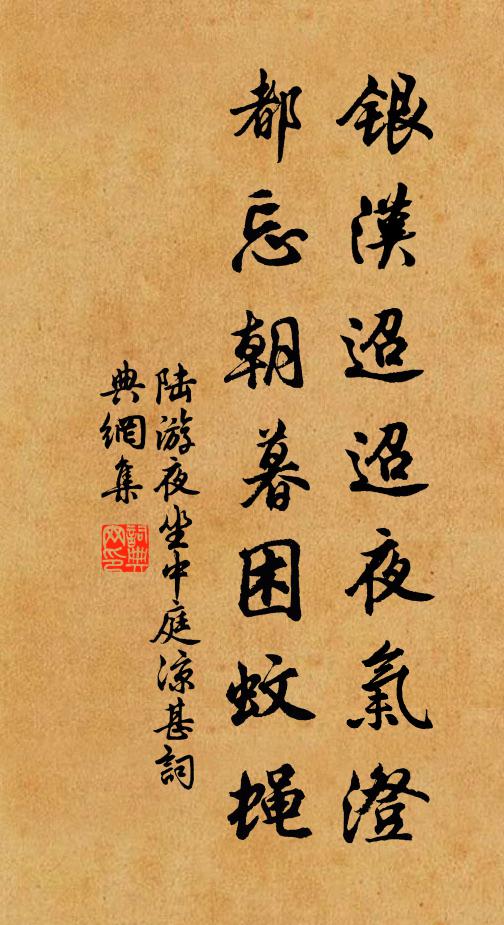 銀漢迢迢夜氣澄
都忘朝暮困蚊蝇
陆游夜坐中庭涼甚詞
典網集
詞典網印